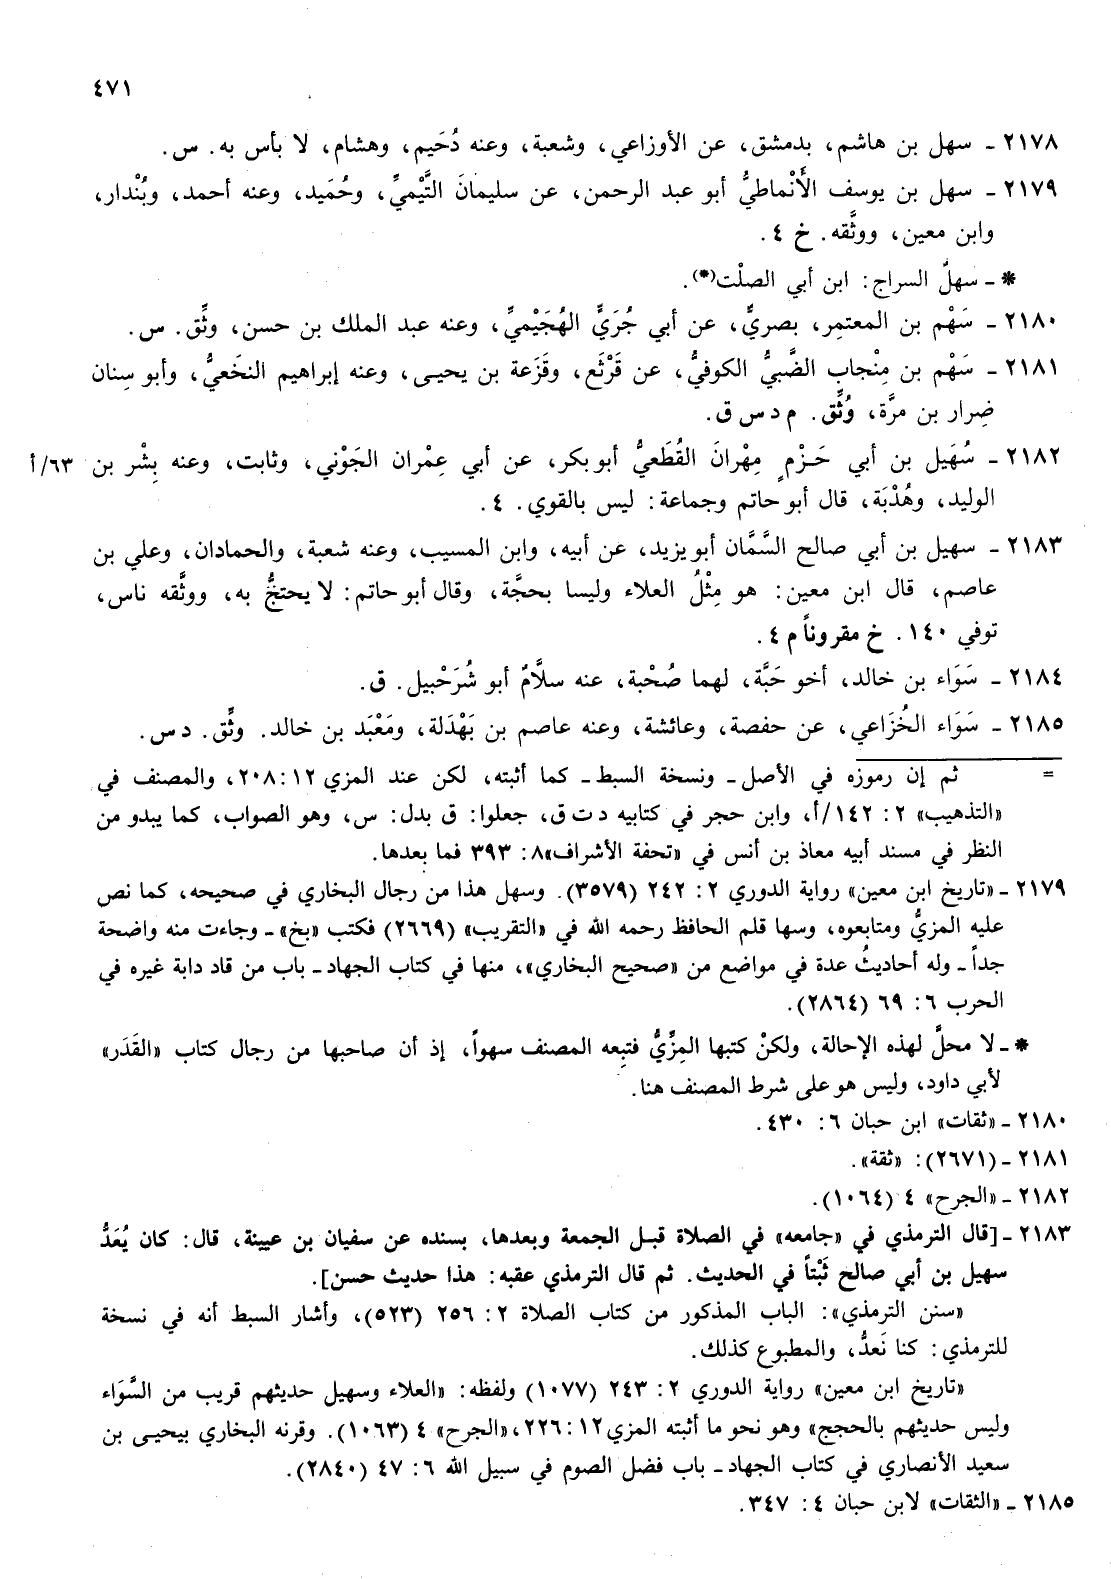 ٤٧١
٢١٧٨ ـ سهل بن هاشم، بدمشق، عن الأوزاعي، وشعبة، وعنه دُحَيم، وهشام، لا بأس به. س.
٢١٧٩ ـ سهل بن يوسف الأَنْماطيُّ أبو عبد الرحمن، عن سليمانَ التَّيْميِّ، وحُمَيد، وعنه أحمد، وبُنْدار،
وابن معين، ووثَّقه. خ ٤.
* ـ سهلٌ السراج: ابن أبي الصلْت(*).
٢١٨٠ ـ سَهْم بن المعتمِر، بصريٌّ، عن أبي جُرَيٍّ الهُجَيْميِّ، وعنه عبد الملك بن حسن، وثِّق. س.
٢١٨١ ـ سَهْم بن مِنْجاب الضَّبيُّ الكوفيُّ، عن قَرْثَع، وقَزَعة بن يحيى، وعنه إبراهيم النخَعيُّ، وأبو سِنان
ضِرار بن مرَّة، وُثِّق. م د س ق.
٢١٨٢ ـ سُهَيل بن أبي حَزْمٍ مِهْرانَ القُطَعيُّ أبو بكر، عن أبي عِمْران الجَوْني، وثابت، وعنه بِشْر بن ٦٣/أ
الوليد، وهُدْبَة، قال أبو حاتم وجماعة: ليس بالقوي. ٤.
٢١٨٣ ـ سهيل بن أبي صالح السَّمَّان أبو يزيد، عن أبيه، وابن المسيب، وعنه شعبة، والحمادان، وعلي بن
عاصم، قال ابن معين: هو مِثْلُ العلاء وليسا بحجَّة، وقال أبو حاتم: لا يحتجُّ به، ووثَّقه ناس،
توفي ١٤٠. خ مقروناً م ٤.
٢١٨٤ ـ سَوَاء بن خالد، أخو حَبَّة، لهما صُحْبة، عنه سلَّامٌ أبو شُرَحْبيل. ق.
٢١٨٥ ـ سَوَاء الخُزَاعي، عن حفصة، وعائشة، وعنه عاصم بن بَهْدَلة، ومَعْبَد بن خالد. وثِّق. د س.
= ثم إن رموزه في الأصل ـ ونسخة السبط ـ كما أثبته، لكن عند المزي ١٢: ٢٠٨، والمصنف في
«التذهيب» ٢: ١٤٢/أ، وابن حجر في كتابيه د ت ق، جعلوا: ق بدل: س، وهو الصواب، كما يبدو من
النظر في مسند أبيه معاذ بن أنس في «تحفة الأشراف» ٨: ٣٩٣ فما بعدها.
٢١٧٩ ـ «تاريخ ابن معين» رواية الدوري ٢: ٢٤٢ (٣٥٧٩). وسهل هذا من رجال البخاري في صحيحه، كما نص
عليه المزيُّ ومتابعوه، وسها قلم الحافظ رحمه الله في «التقريب» (٢٦٦٩) فكتب «بخ» ـ وجاءت منه واضحة
جداً ـ وله أحاديثُ عدة في مواضع من «صحيح البخاري»، منها في كتاب الجهاد ـ باب من قاد دابة غيره في
الحرب ٦: ٦٩ (٢٨٦٤).
* ـ لا محلَّ لهذه الإحالة، ولكنْ كتبها المِزِّيُّ فتبِعه المصنف سهواً، إذ أن صاحبها من رجال كتاب «القَدَر»
لأبي داود، وليس هو على شرط المصنف هنا.
٢١٨٠ ـ «ثقات» ابن حبان ٦: ٤٣٠.
٢١٨١ ـ (٢٦٧١): «ثقة».
٢١٨٢ ـ «الجرح» ٤ (١٠٦٤).
٢١٨٣ ـ [قال الترمذي في «جامعه» في الصلاة قبل الجمعة وبعدها، بسنده عن سفيان بن عيينة، قال: كان يُعَدُّ
سهيل بن أبي صالح ثَبْتاً في الحديث. ثم قال الترمذي عقبه: هذا حديث حسن].
«سنن الترمذي»: الباب المذكور من كتاب الصلاة ٢: ٢٥٦ (٥٢٣)، وأشار السبط أنه في نسخة
للترمذي: كنا نَعدُّ، والمطبوع كذلك.
«تاريخ ابن معين» رواية الدوري ٢: ٢٤٣ (١٠٧٧) ولفظه: «العلاء وسهيل حديثهم قريب من السَّوَاء
وليس حديثهم بالحجج» وهو نحو ما أثبته المزي ١٢: ٢٢٦، «الجرح» ٤ (١٠٦٣). وقرنه البخاري بيحيى بن
سعيد الأنصاري في كتاب الجهاد ـ باب فضل الصوم في سبيل الله ٦: ٤٧ (٢٨٤٠).
٢١٨٥ ـ «الثقات» لابن حبان ٤: ٣٤٧.